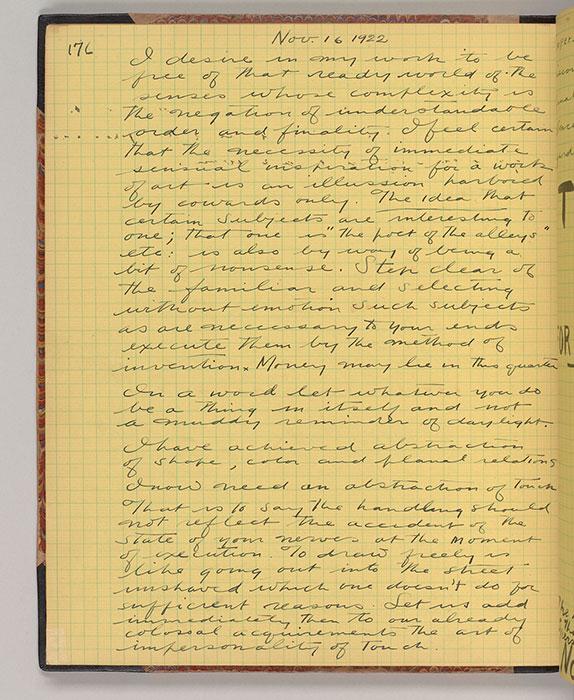 176
Nov. 16 1922
I desire in my work to be
free of that ready world of the
senses whose complexity is
the negation of understandable
order and finality. I feel certain
that the necessity of immediate
sensual inspiration for a work
of art is an illussion harbored
by cowards only. The idea that
certain subjects are interesting to
one; that one is "the poet of the alleys"
etc: is also by way of being a
bit of nonsense. Step clear of
the familiar and selecting
without emotion such subjects
as are neccessary to your ends
execute them by the method of
invention. Money may lie in this quarter
In a word let whatever you do
be a thing in itself and not
a muddy reminder of daylight.
I have achieved abstraction
of shape, color and planal relations
I now need an abstraction of Touch
That is to say the handling should
not reflect the accident of the
state of your nerves at the moment
of execution. To draw freely is
like going out into the street
unshaved which one doesn't do for
sufficient reasons. Let us add
immediately then to our already
colossal acquirements the art of
impersonality of Touch.
T
OR